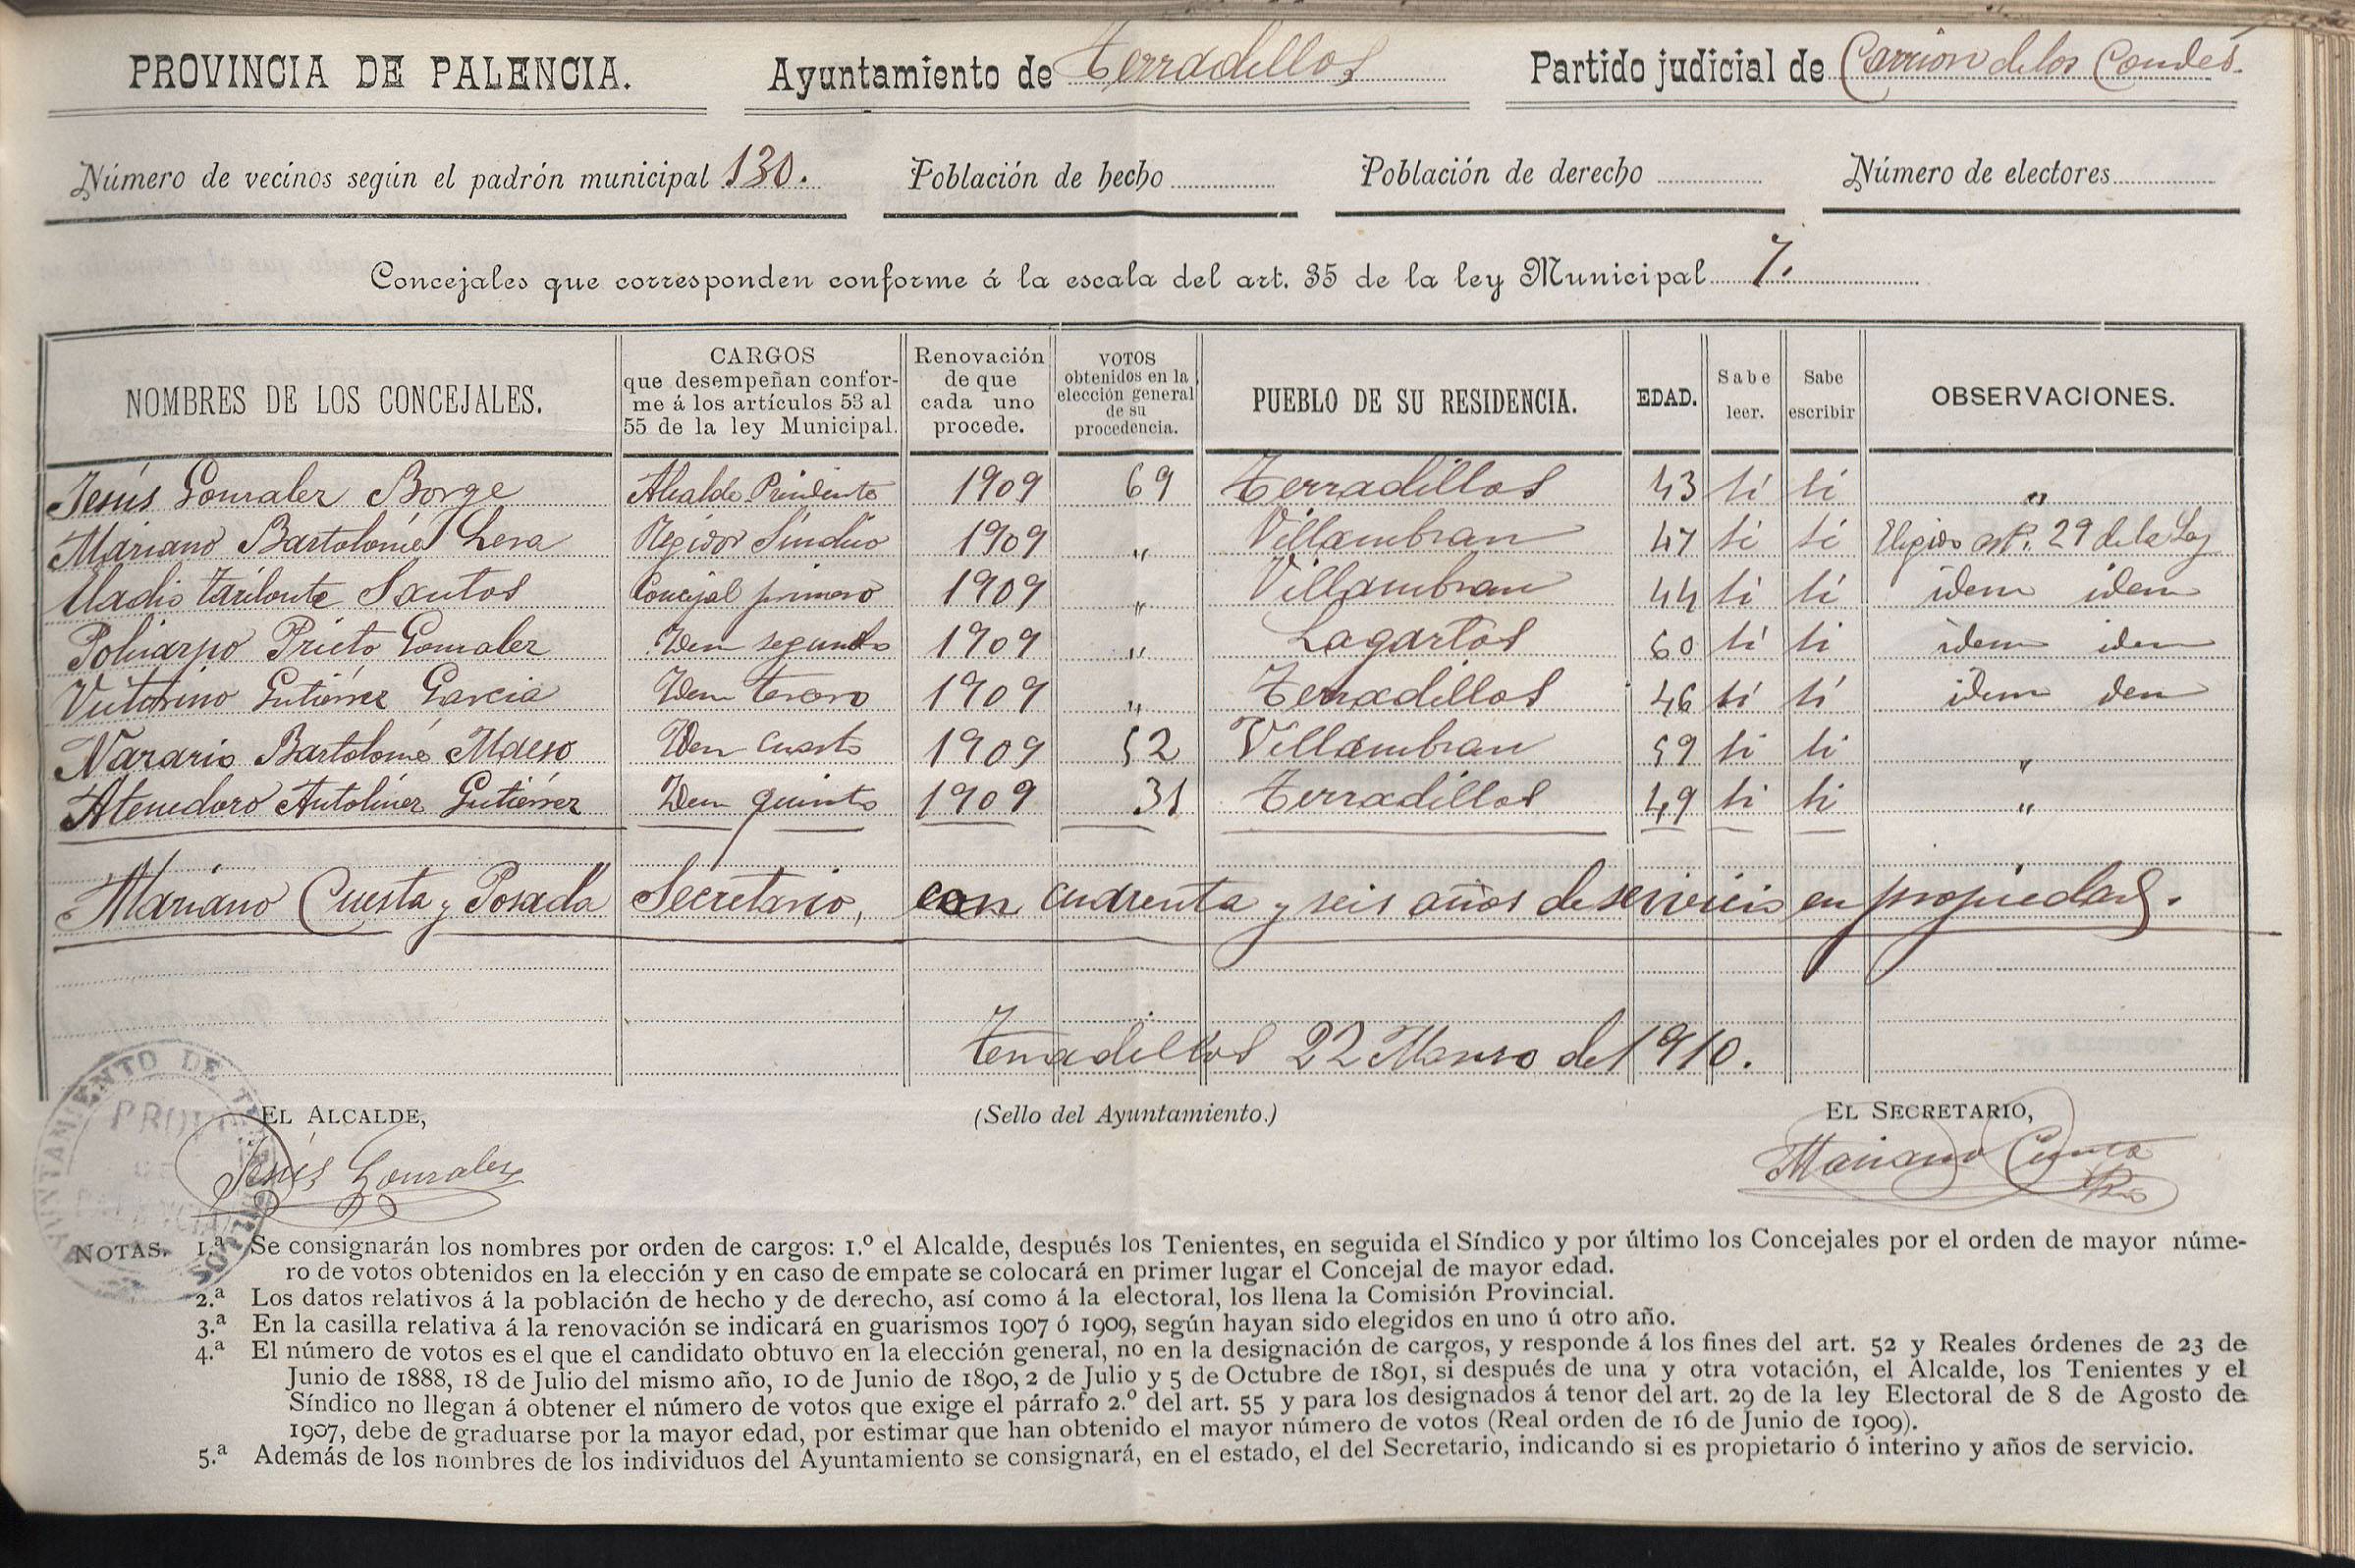 PROVINCIA DE PALENCIA. Ayuntamiento de Terradillos Partido judicial de Carrion de los Condes.
Número de vecinos según el padrón municipal 130. Población de hecho Población de derecho Número de electores
Concejales que corresponden conforme á la escala del art. 35 de la ley Municipal 7.
NOMBRES DE LOS CONCEJALES. CARGOS que desempeñan confor- me á los artículos 53 al 55 de la ley Municipal. Renovación de que cada uno procede. VOTOS obtenidos en la elección general de su procedencia. PUEBLO DE SU RESIDENCIA. EDAD. Sabe leer. Sabe escribir OBSERVACIONES.
Jesús Gonzalez Borge Alcalde Presidente 1909 69 Terradillos 43 si si "
Mariano Bartolomé Lera Regidor Síndico 1909 " Villambran 47 si si Elegido art. 29 de la Ley
Eladio Tarilonte Santos Concejal primero 1909 " Villambran 44 si si idem idem
Policarpo Prieto Gonzalez Idem segundo 1909 " Lagartos 60 si si idem idem
Victorino Gutiérrez Garcia Idem tercero 1909 " Terradillos 46 si si idem dem
Nazario Bartolomé Maeso Idem cuarto 1909 52 Villambran 59 si si "
Atenedoro Antolínez Gutiérrez Idem quinto 1909 31 Terradillos 49 si si "
Mariano Cuesta y Posada Secretario, con cuarenta y seis años de servicio en propiedad.
Terradillos 22 Marzo de 1910.
EL ALCALDE, (Sello del Ayuntamiento.) EL SECRETARIO,
Jesús Gonzalez Mariano Cuesta
AYUNTAMIENTO DE TERRADILLOS
PROVª DE PALENCIA
NOTAS. 1.ª Se consignarán los nombres por orden de cargos: 1.º el Alcalde, después los Tenientes, en seguida el Síndico y por último los Concejales por el orden de mayor núme-
ro de votos obtenidos en la elección y en caso de empate se colocará en primer lugar el Concejal de mayor edad.
2.ª Los datos relativos á la población de hecho y de derecho, así como á la electoral, los llena la Comisión Provincial.
3.ª En la casilla relativa á la renovación se indicará en guarismos 1907 ó 1909, según hayan sido elegidos en uno ú otro año.
4.ª El número de votos es el que el candidato obtuvo en la elección general, no en la designación de cargos, y responde á los fines del art. 52 y Reales órdenes de 23 de
Junio de 1888, 18 de Julio del mismo año, 10 de Junio de 1890, 2 de Julio y 5 de Octubre de 1891, si después de una y otra votación, el Alcalde, los Tenientes y el
Síndico no llegan á obtener el número de votos que exige el párrafo 2.º del art. 55 y para los designados á tenor del art. 29 de la ley Electoral de 8 de Agosto de
1907, debe de graduarse por la mayor edad, por estimar que han obtenido el mayor número de votos (Real orden de 16 de Junio de 1909).
5.ª Además de los nombres de los individuos del Ayuntamiento se consignará, en el estado, el del Secretario, indicando si es propietario ó interino y años de servicio.